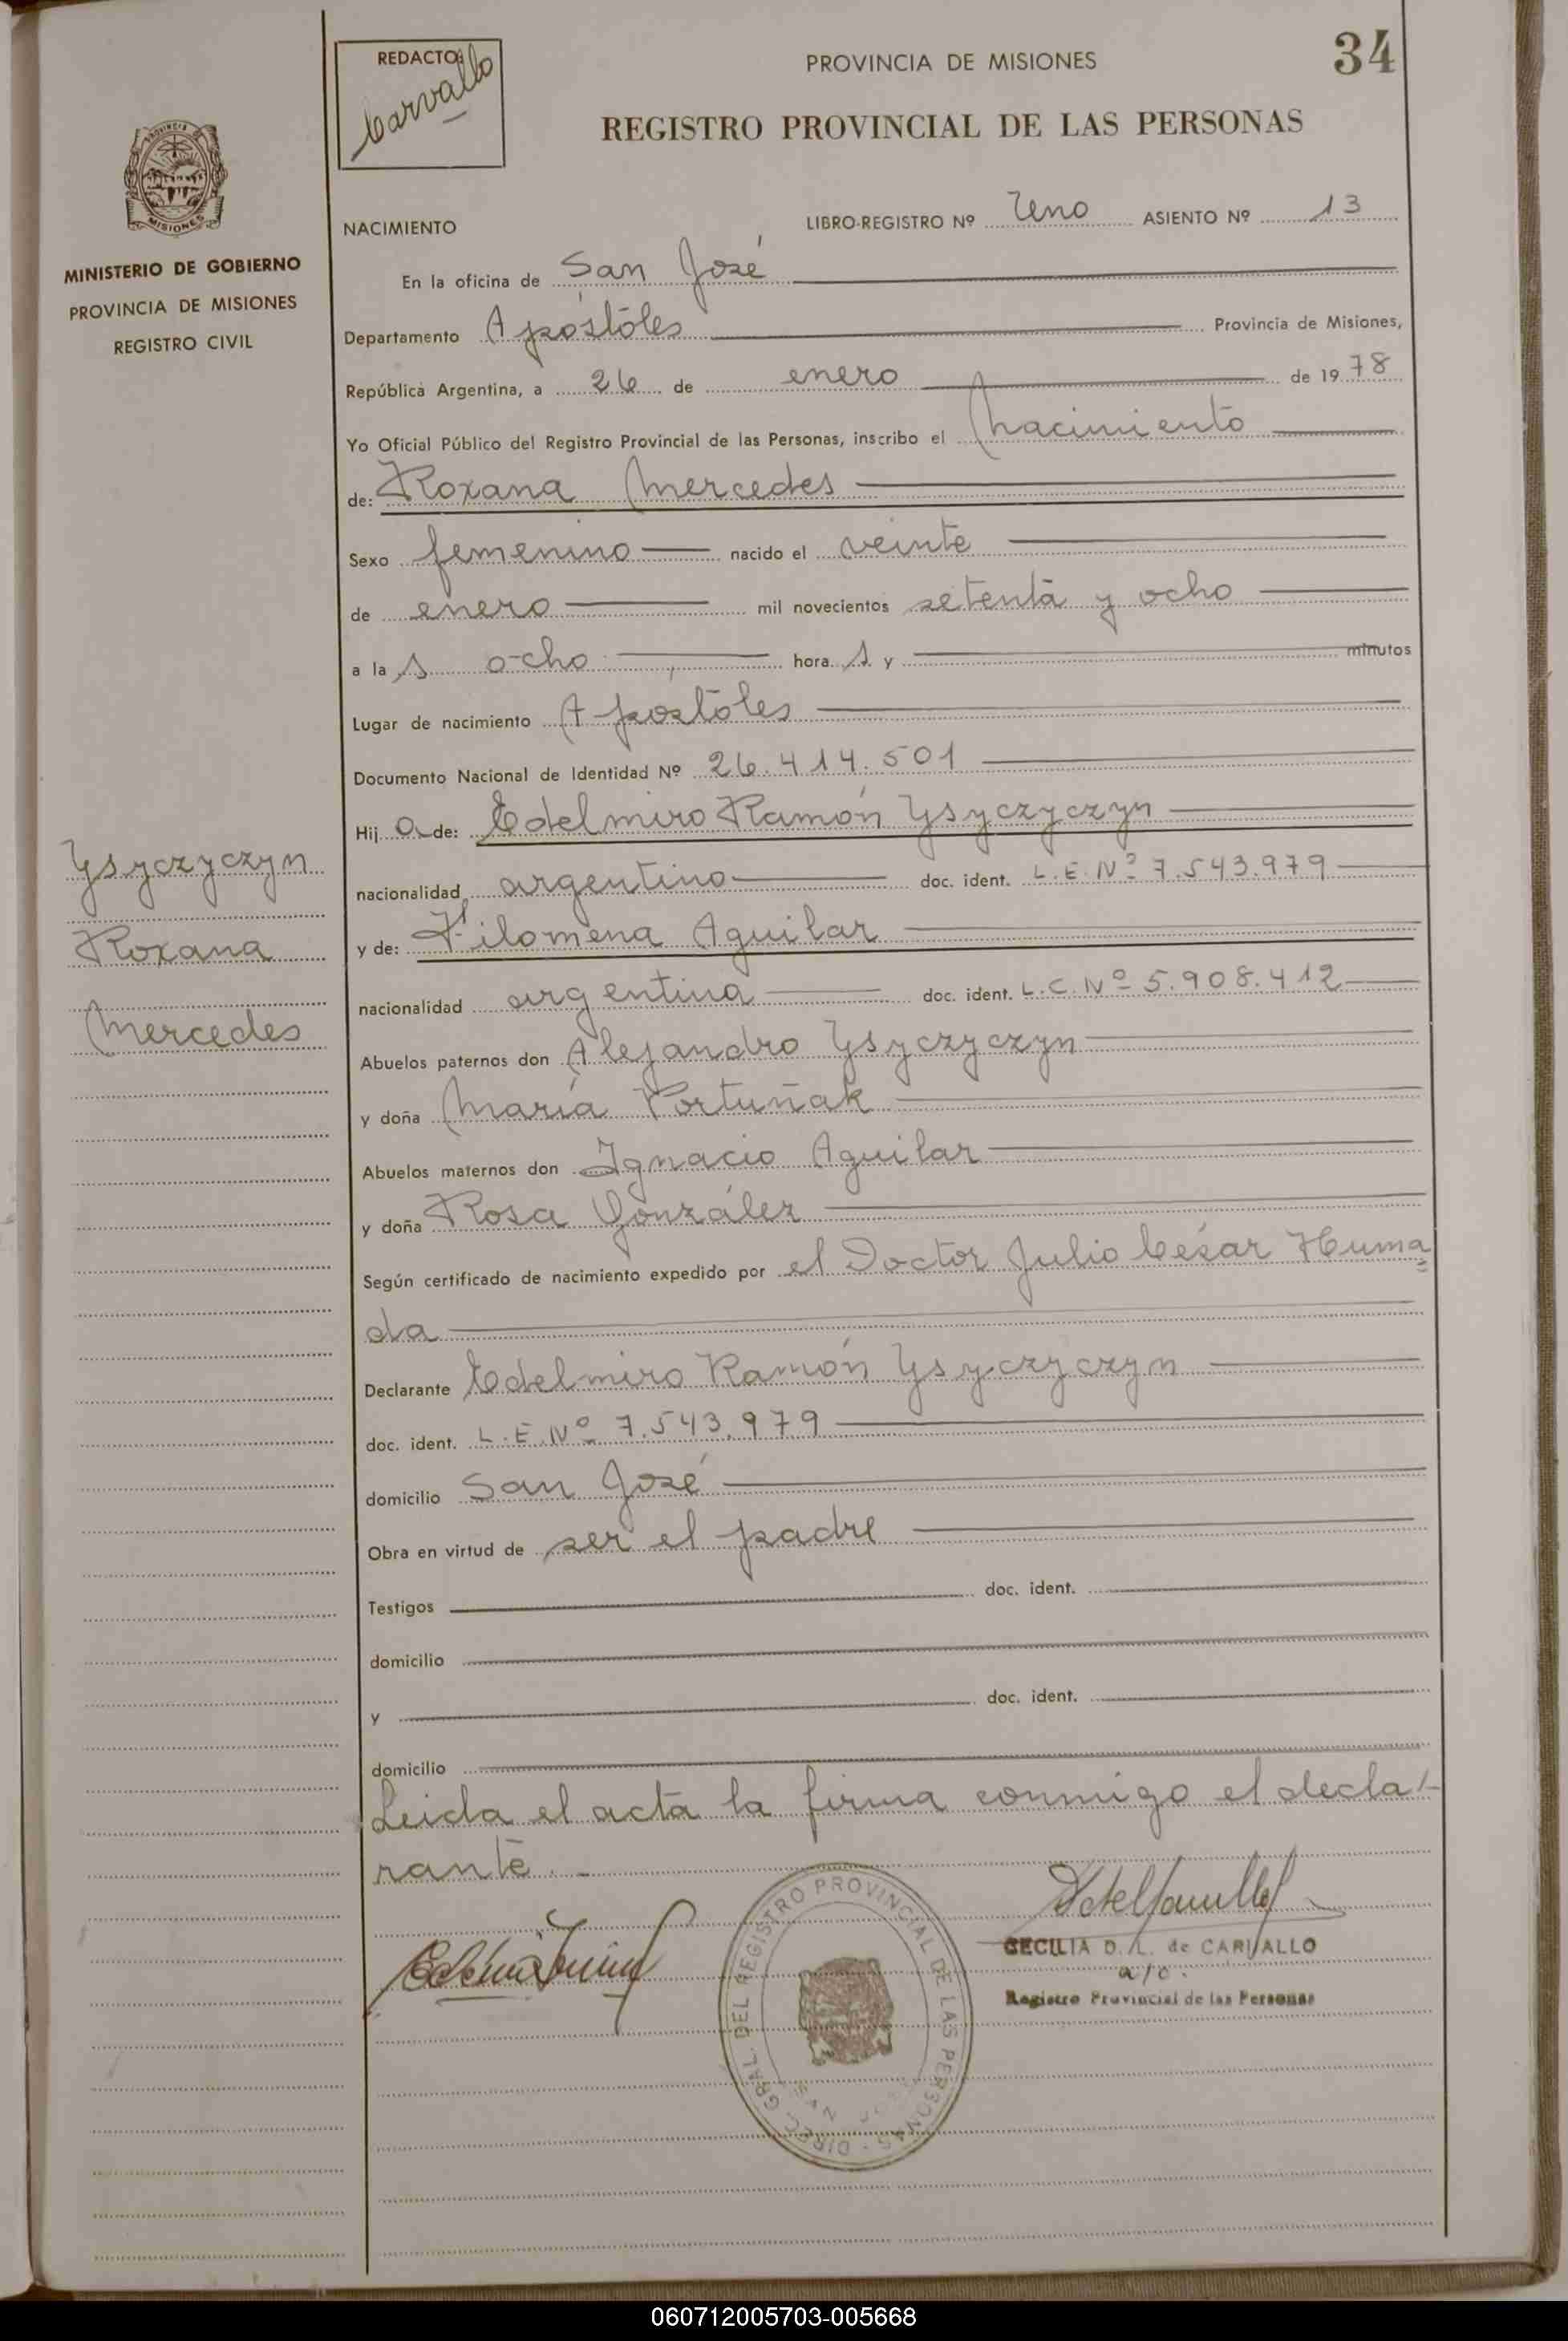 34
REDACTOR
Carvallo
PROVINCIA DE MISIONES
REGISTRO PROVINCIAL DE LAS PERSONAS
PROVINCIA DE
MISIONES
MINISTERIO DE GOBIERNO
PROVINCIA DE MISIONES
REGISTRO CIVIL
NACIMIENTO LIBRO-REGISTRO Nº Uno ASIENTO Nº 13
En la oficina de San José
Departamento Apóstoles Provincia de Misiones,
República Argentina, a 26 de enero de 1978
Yo Oficial Público del Registro Provincial de las Personas, inscribo el Nacimiento
de: Roxana Mercedes
Sexo femenino nacido el veinte
de enero mil novecientos setenta y ocho
a la s ocho hora s y minutos
Lugar de nacimiento Apóstoles
Documento Nacional de Identidad Nº 26.414.501
Hij a de: Edelmiro Ramón Ysyczyczyn
nacionalidad argentino doc. ident. L.E. Nº 7.543.979
y de: Filomena Aguilar
nacionalidad argentina doc. ident. L.C. Nº 5.908.412
Abuelos paternos don Alejandro Ysyczyczyn
y doña María Portuñak
Abuelos maternos don Ignacio Aguilar
y doña Rosa González
Según certificado de nacimiento expedido por el Doctor Julio César Huma=
da
Declarante Edelmiro Ramón Ysyczyczyn
doc. ident. L.E. Nº 7.543.979
domicilio San José
Obra en virtud de ser el padre
Testigos doc. ident.
domicilio
y doc. ident.
domicilio
Leida el acta la firma conmigo el decla-
rante.-
Ysyczyczyn
Roxana
Mercedes
DIREC. GRAL. DEL REGISTRO PROVINCIAL DE LAS PERSONAS -
CECILIA D. L. de CARVALLO
a/c.
Registro Provincial de las Personas
060712005703-005668